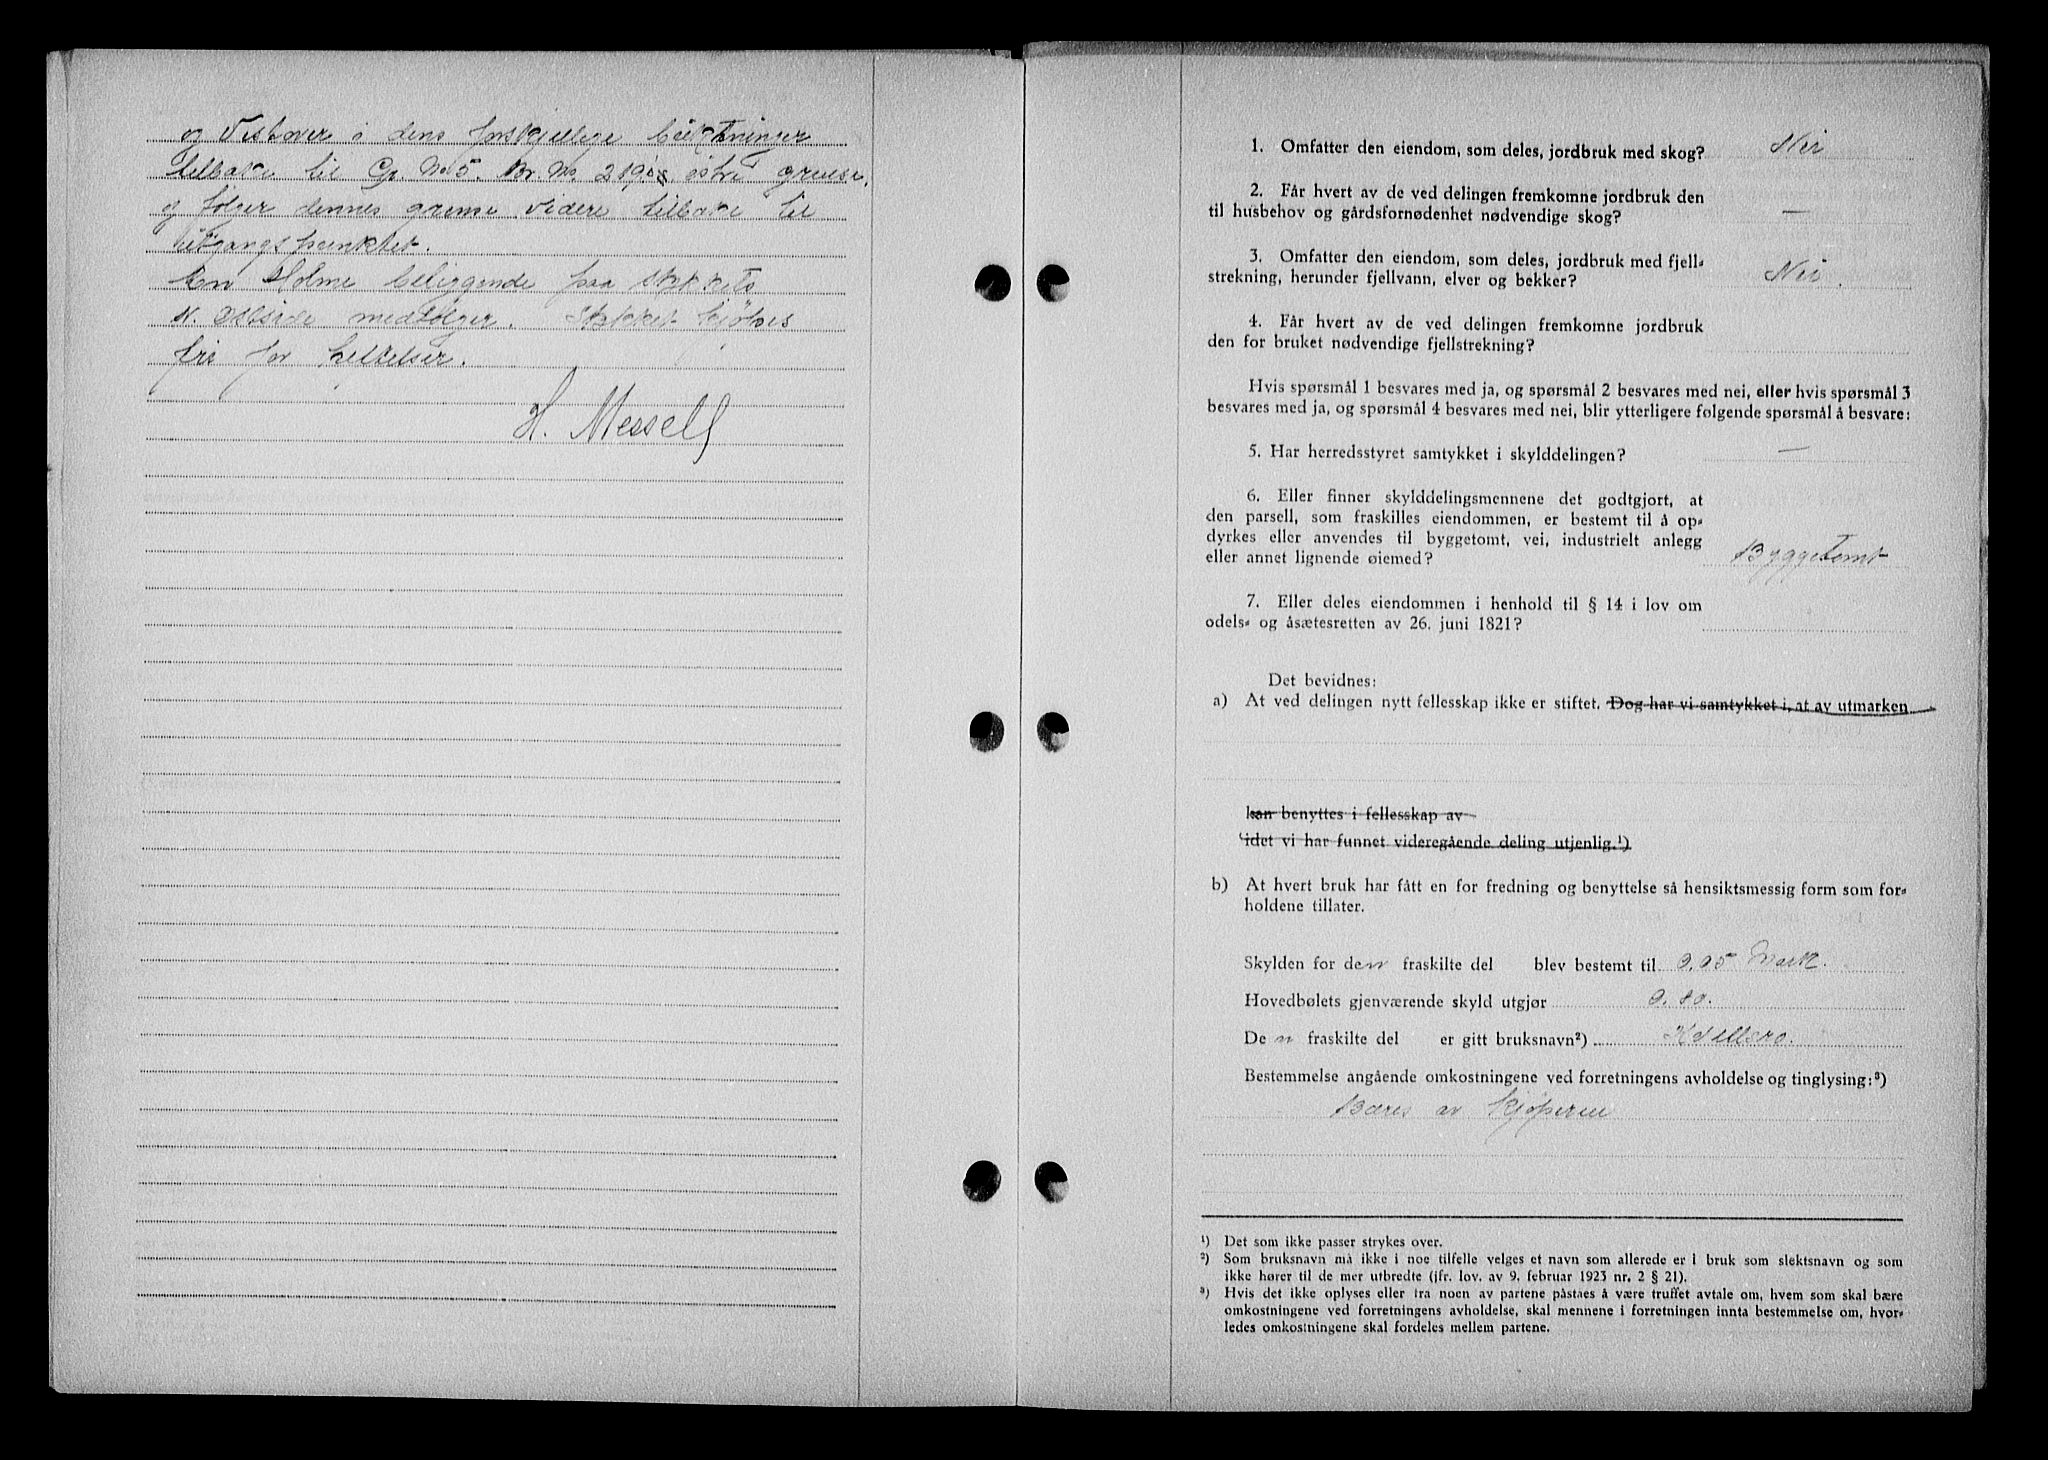 og Vestover i dens forskjellige bugtninger
tilbake til Gr. No 5. Br. No. 219's østre grense,
og følger dennes grense videre tilbake til
Utgangspunktet.
En Holme beliggende paa stykkets
N. Østside medfølger. Stykket kjøpes
fri for heftelser.
H. Messell
1. Omfatter den eiendom, som deles, jordbruk med skog? Nei
2. Får hvert av de ved delingen fremkomne jordbruk den
til husbehov og gårdsfornødenhet nødvendige skog? —
3. Omfatter den eiendom, som deles, jordbruk med fjell-
strekning, herunder fjellvann, elver og bekker? Nei.
4. Får hvert av de ved delingen fremkomne jordbruk
den for bruket nødvendige fjellstrekning?
Hvis spørsmål 1 besvares med ja, og spørsmål 2 besvares med nei, eller hvis spørsmål 3
besvares med ja, og spørsmål 4 besvares med nei, blir ytterligere følgende spørsmål å besvare:
5. Har herredsstyret samtykket i skylddelingen? —
6. Eller finner skylddelingsmennene det godtgjort, at
den parsell, som fraskilles eiendommen, er bestemt til å op-
dyrkes eller anvendes til byggetomt, vei, industrielt anlegg
eller annet lignende øiemed? Byggetomt
7. Eller deles eiendommen i henhold til § 14 i lov om
odels- og åsætesretten av 26. juni 1821?
Det bevidnes:
a) At ved delingen nytt fellesskap ikke er stiftet. Dog har vi samtykket i, at av utmarken
kan benyttes i fellesskap av
idet vi har funnet videregående deling utjenlig.¹)
b) At hvert bruk har fått en for fredning og benyttelse så hensiktsmessig form som for-
holdene tillater.
Skylden for den fraskilte del blev bestemt til 0.05 Mark.
Hovedbølets gjenværende skyld utgjør 0.80.
De n fraskilte del er gitt bruksnavn²)
Bestemmelse angående omkostningene ved forretningens avholdelse og tinglysing:³)
Bæres av kjøperen
¹) Det som ikke passer strykes over.
²) Som bruksnavn må ikke i noe tilfelle velges et navn som allerede er i bruk som slektsnavn og som
ikke hører til de mer utbredte (jfr. lov. av 9. februar 1923 nr. 2 § 21).
³) Hvis det ikke oplyses eller fra noen av partene påstaes å være truffet avtale om, hvem som skal bære
omkostningene ved forretningens avholdelse, skal mennene i forretningen innta bestemmelse om, hvor-
ledes omkostningene skal fordeles mellem partene.